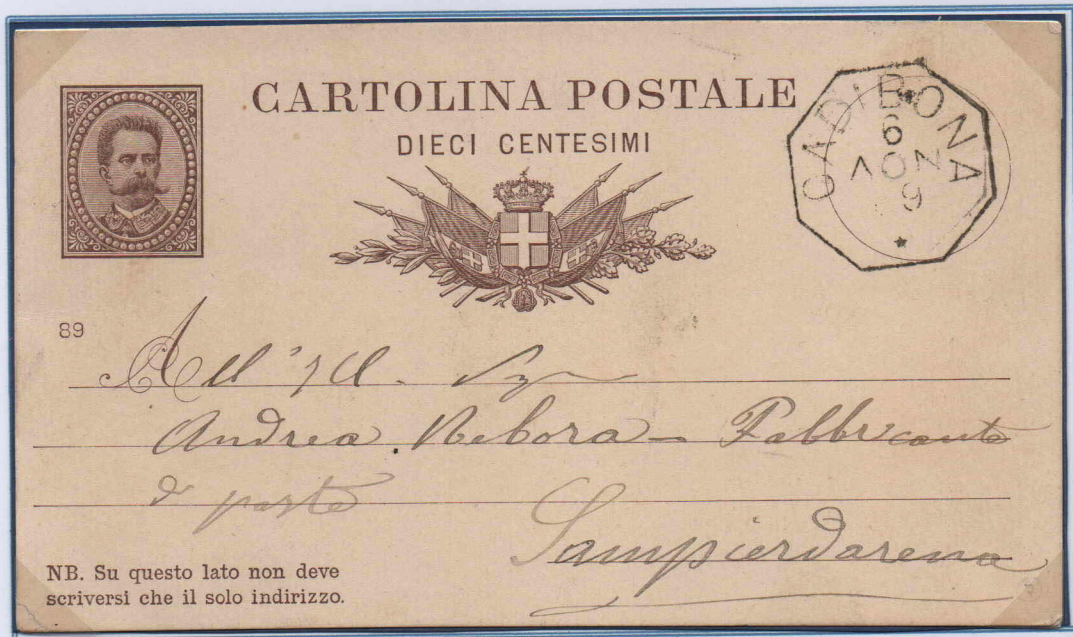 CARTOLINA POSTALE
DIECI CENTESIMI
CADIBONA
6
NOV
9
89
All'Ill. Sigr
Andrea Rebora - Fabbricante
di paste
Sampierdarena
NB. Su questo lato non deve
scriversi che il solo indirizzo.